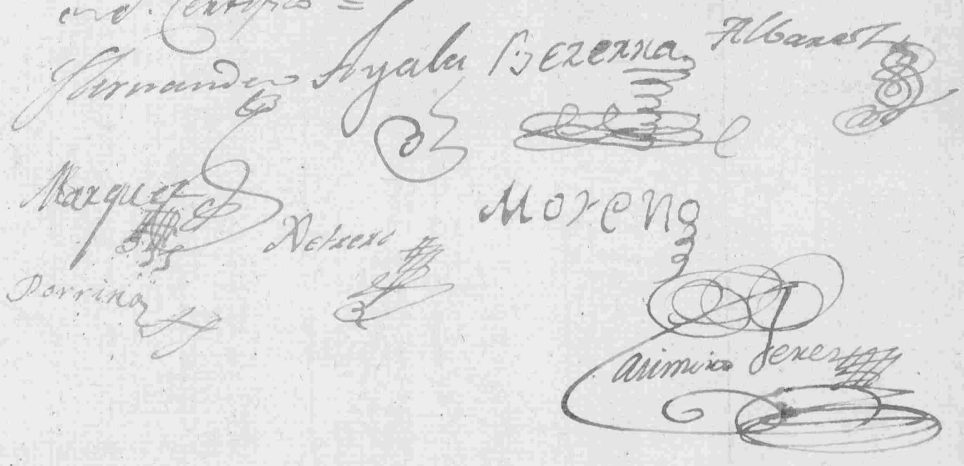 en d. Certifico =
Hernandez Ayala Bezerra Albarez
Marquez Moreno
Retxero
Porrino
Casimiro Perez